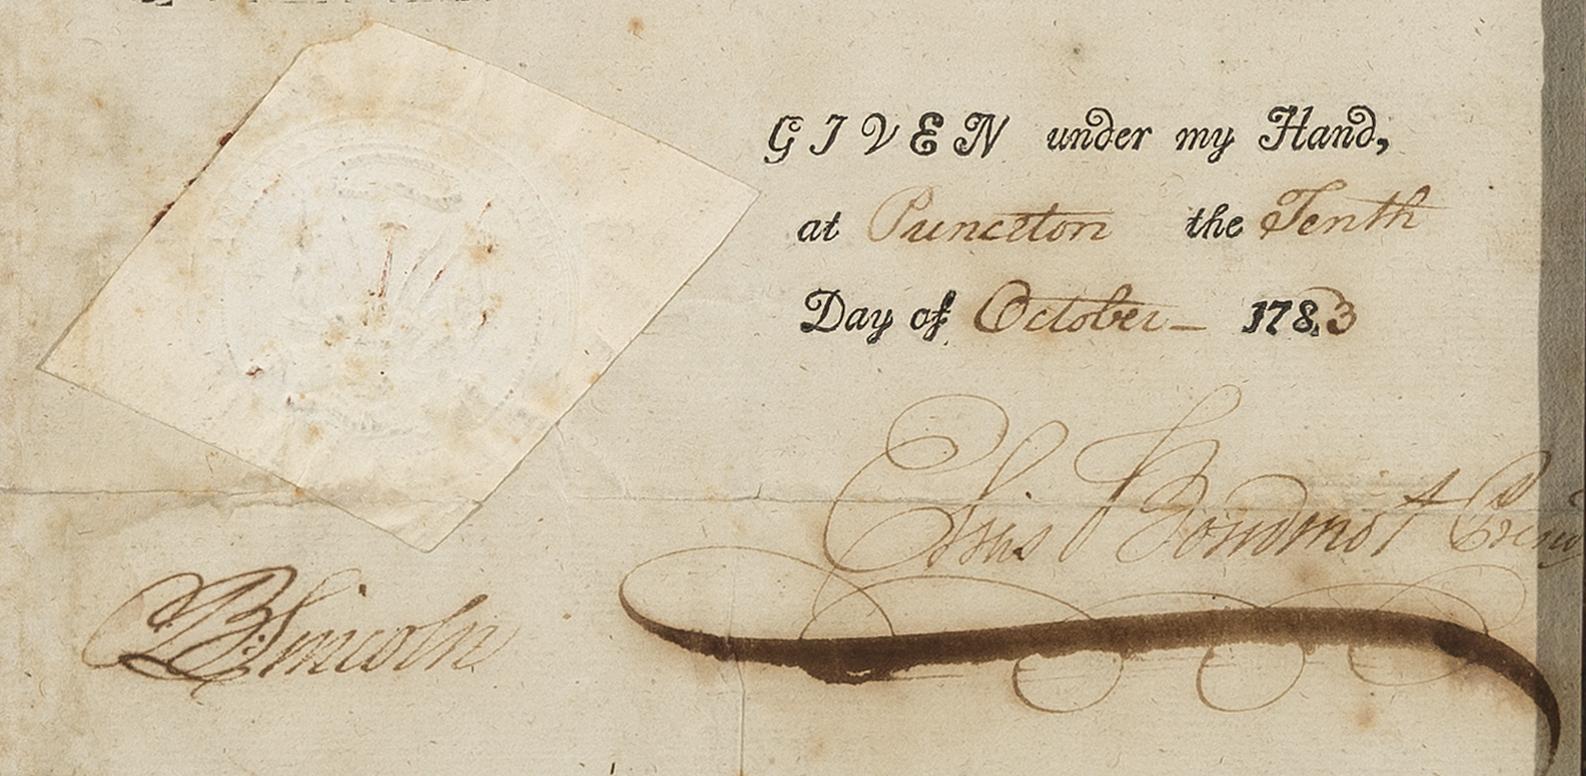 GIVEN under my Hand,
at Princeton the Tenth
Day of October 1783
Elias Boudinot
B: Lincoln